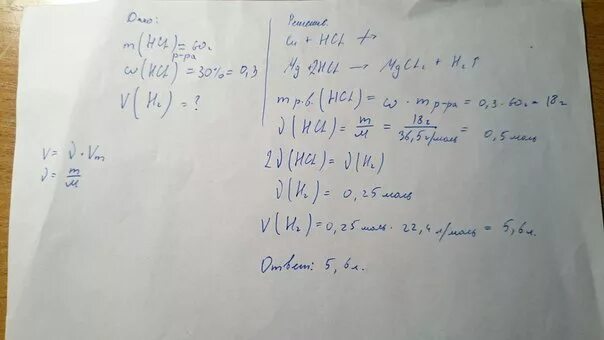 Дано:
m(HCl) = 60г
р-ра
ω(HCl) = 30% = 0,3
V(H₂) = ?
V = ν · Vm
ν = m/M
Решение:
Cu + HCl ↛
Mg 2HCl → MgCl₂ + H₂↑
m р.в.(HCl) = ω · m р-ра = 0,3 · 60г = 18г
ν(HCl) = m/M = 18г/36,5г/моль = 0,5 моль
2ν(HCl) = ν(H₂)
ν(H₂) = 0,25 моль
V(H₂) = 0,25 моль · 22,4 л/моль = 5,6л.
Ответ: 5,6л.